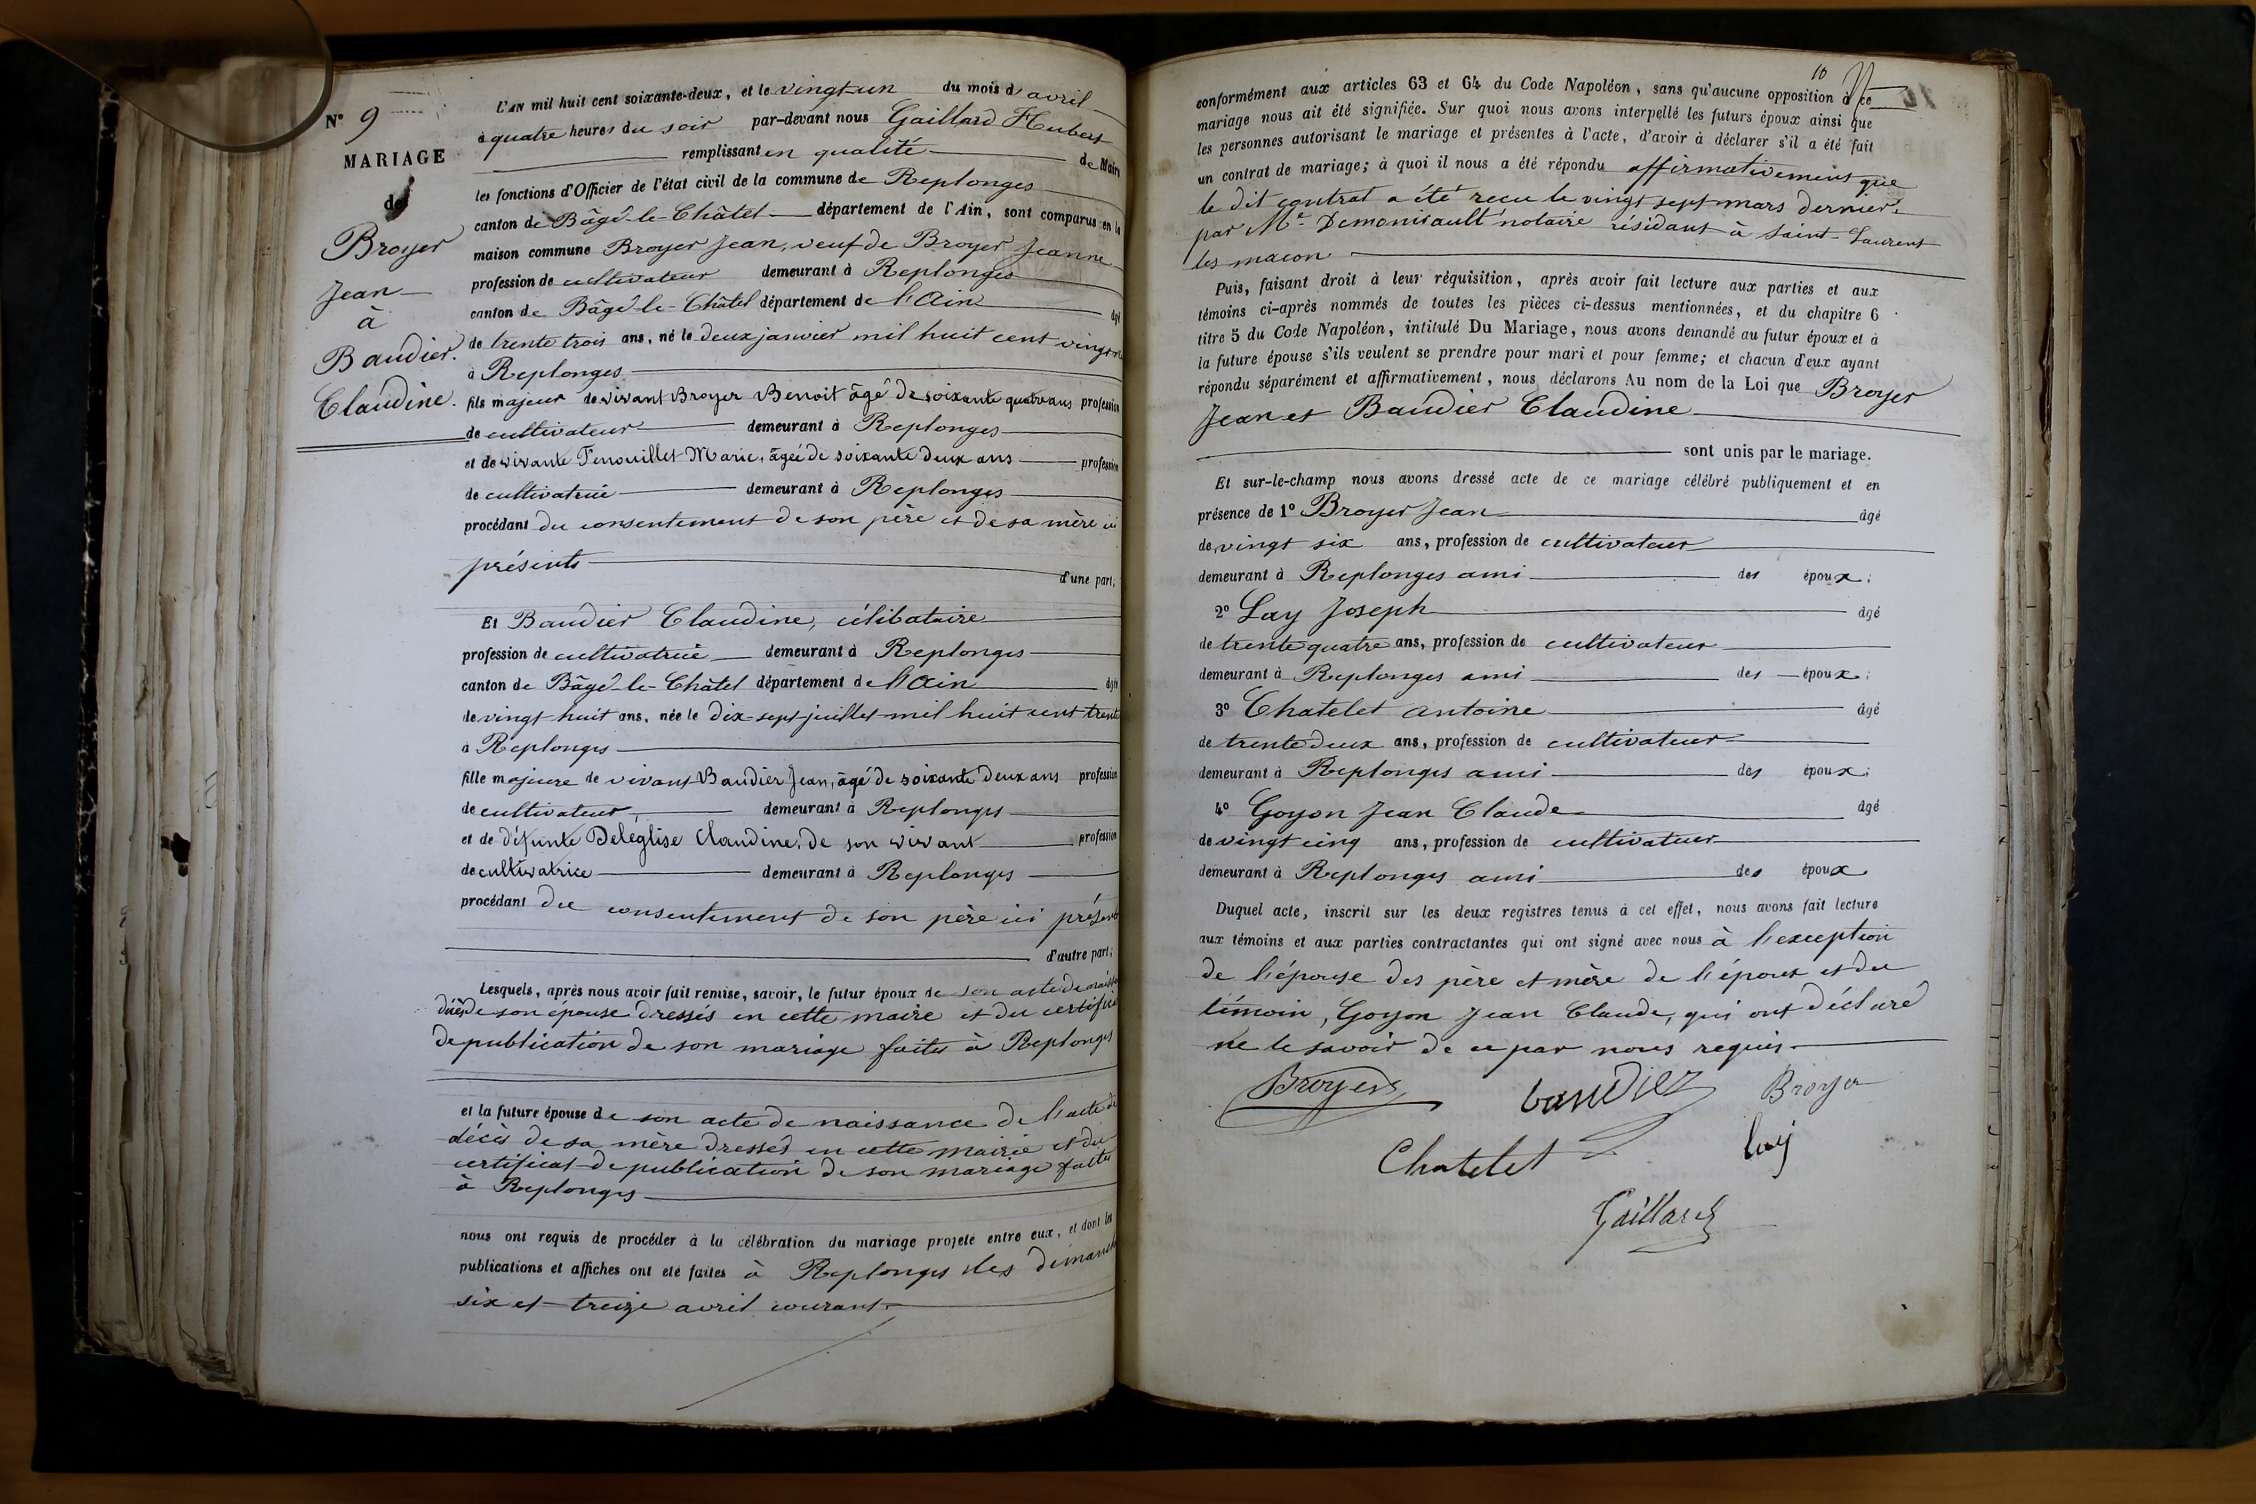 N° 9
MARIAGE
de
Broyer
Jean
à
Baudier
Claudine.
L'an mil huit cent soixante-deux, et le vingt-un du mois d'avril
à quatre heures du soir par-devant nous Gaillard Hubert
remplissant en qualité de Maire
les fonctions d'Officier de l'état civil de la commune de Replonges
canton de Bâgé-le-Châtel département de l'Ain, sont comparus en la
maison commune Broyer Jean, veuf de Broyer Jeanne
profession de cultivateur demeurant à Replonges
canton de Bâgé-le-Châtel département de l'Ain âgé
de trente trois ans, né le deux janvier mil huit cent vingt
à Replonges
fils majeur de vivant Broyer Benoit âgé de soixante quatre ans profession
de cultivateur demeurant à Replonges
et de vivante Fenouillet Marie, âgée de soixante deux ans profession
de cultivatrice demeurant à Replonges
procédant du consentement de son père et de sa mère ici
présents d'une part;
Et Baudier Claudine, célibataire
profession de cultivatrice demeurant à Replonges
canton de Bâgé-le-Châtel département de l'Ain âgée
de vingt huit ans, née le dix-sept juillet mil huit cent trente
à Replonges
fille majeure de vivant Baudier Jean, âgé de soixante deux ans profession
de cultivateur, demeurant à Replonges
et de défunte Deleglise Claudine, de son vivant profession
de cultivatrice demeurant à Replonges
procédant du consentement de son père ici présent
d'autre part;
Lesquels, après nous avoir fait remise, savoir, le futur époux de son acte de naissance
de son épouse dressés en cette mairie et du certificat
de publication de son mariage faites à Replonges
et la future épouse de son acte de naissance de l'acte de
décès de sa mère dressés en cette mairie et du
certificat de publication de son mariage faites
à Replonges
nous ont requis de procéder à la célébration du mariage projeté entre eux, et dont les
publications et affiches ont été faites à Replonges les dimanches
six et treize avril courant.
10
conformément aux articles 63 et 64 du Code Napoléon, sans qu'aucune opposition à ce
mariage nous ait été signifiée. Sur quoi nous avons interpellé les futurs époux ainsi que
les personnes autorisant le mariage et présentes à l'acte, d'avoir à déclarer s'il a été fait
un contrat de mariage; à quoi il nous a été répondu affirmativement que
le dit contrat a été reçu le vingt sept mars dernier
par Me Demoniault notaire résidant à Saint-Laurent
les macon
Puis, faisant droit à leur réquisition, après avoir fait lecture aux parties et aux
témoins ci-après nommés de toutes les pièces ci-dessus mentionnées, et du chapitre 6
titre 5 du Code Napoléon, intitulé Du Mariage, nous avons demandé au futur époux et à
la future épouse s'ils veulent se prendre pour mari et pour femme; et chacun d'eux ayant
répondu séparément et affirmativement, nous déclarons Au nom de la Loi que Broyer
Jean et Baudier Claudine
sont unis par le mariage.
Et sur-le-champ nous avons dressé acte de ce mariage célébré publiquement et en
présence de 1° Broyer Jean âgé
de vingt six ans, profession de cultivateur
demeurant à Replonges ami des époux;
2° Lay Joseph âgé
de trente quatre ans, profession de cultivateur
demeurant à Replonges ami des époux;
3° Chatelet Antoine âgé
de trente deux ans, profession de cultivateur
demeurant à Replonges ami des époux;
4° Goyon Jean Claude âgé
de vingt cinq ans, profession de cultivateur
demeurant à Replonges ami des époux
Duquel acte, inscrit sur les deux registres tenus à cet effet, nous avons fait lecture
aux témoins et aux parties contractantes qui ont signé avec nous à l'exception
de l'épouse des père et mère de l'époux et du
témoin, Goyon Jean Claude, qui ont déclaré
ne le savoir de ce par nous requis.
Broyer baudier Broyer
Chatelet lay
Gaillard